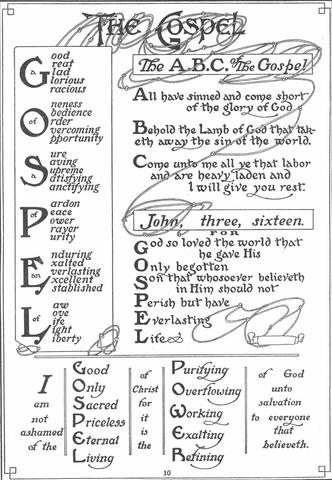 The Gospel
G
a
ood
reat
lad
lorious
racious
O
of
neness
bedience
rder
vercoming
pportunity
S
a
ure
aving
upreme
atisfying
anctifying
P
of
ardon
eace
ower
rayer
urity
E
an
nduring
xalted
verlasting
xcellent
stablished
L
of
aw
ove
ife
ight
iberty
The A.B.C. of The Gospel
All have sinned and come short
of the glory of God
Behold the Lamb of God that tak-
eth away the sin of the world.
Come unto me all ye that labor
and are heavy laden and
I will give you rest.
John, three, sixteen.
FOR
God so loved the world that
he gave His
Only begotten
Son that whosoever believeth
in Him should not
Perish but have
Everlasting
Life
I
am
not
ashamed
of the
Good
Only
Sacred
Priceless
Eternal
Living
of
Christ
for
it
is
the
Purifying
Overflowing
Working
Exalting
Refining
of God
unto
salvation
to everyone
that
believeth.
10